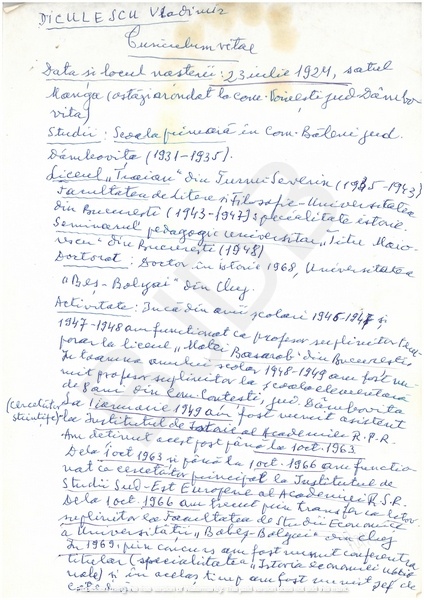 DICULESCU Vladimir
Curiculum vitae
Data și locul nașterii: 23 iulie 1924, satul
Manga (astăzi arondat la com. Voinești jud. Dâmbo
vița)
Studii: Școala primară în com. Băleni jud.
Dâmbovița (1931-1935).
Liceul "Traian" din Turnu-Severin (1935-1943)
Facultatea de Litere și Filosofie - Universitatea
din București (1943-1947) specialitate istorie.
Seminarul pedagogic universitar "Titu Maio-
rescu" din București (1948)
Doctorat: Doctor în istorie 1968, Universitatea
"Beș-Bolyai" din Cluj
Activitate: Încă din anii școlari 1946-1947 și
1947-1948 am funcționat ca profesor suplinitor tem-
porar la liceul "Matei Basarab" din București.
În toamna anului școlar 1948-1949 am fost nu-
mit profesor suplinitor la școala elementară
de 8 ani din com. Contești, jud. Dâmbovița
La 1 ianuarie 1949 am fost numit asistent
(cercetător
științific)
la Institutul de Istorie al Academiei R.P.R.
Am deținut acest post până la 1 oct. 1963
De la 1 oct 1963 și până la 1 oct. 1966 am funcțio
nat ca cercetător principal la Institutul de
Studii Sud-Est Europene al Academiei R.S.R.
De la 1 oct. 1966 am trecut prin transfer ca lector
suplinitor la Facultatea de Studii Economice
a Universității "Babeș-Bolyai" din Cluj
In 1969, prin concurs am fost numit conferențiar
titular (specialitatea "Istoria economiei națio
nale) și în același timp am fost numit șef de